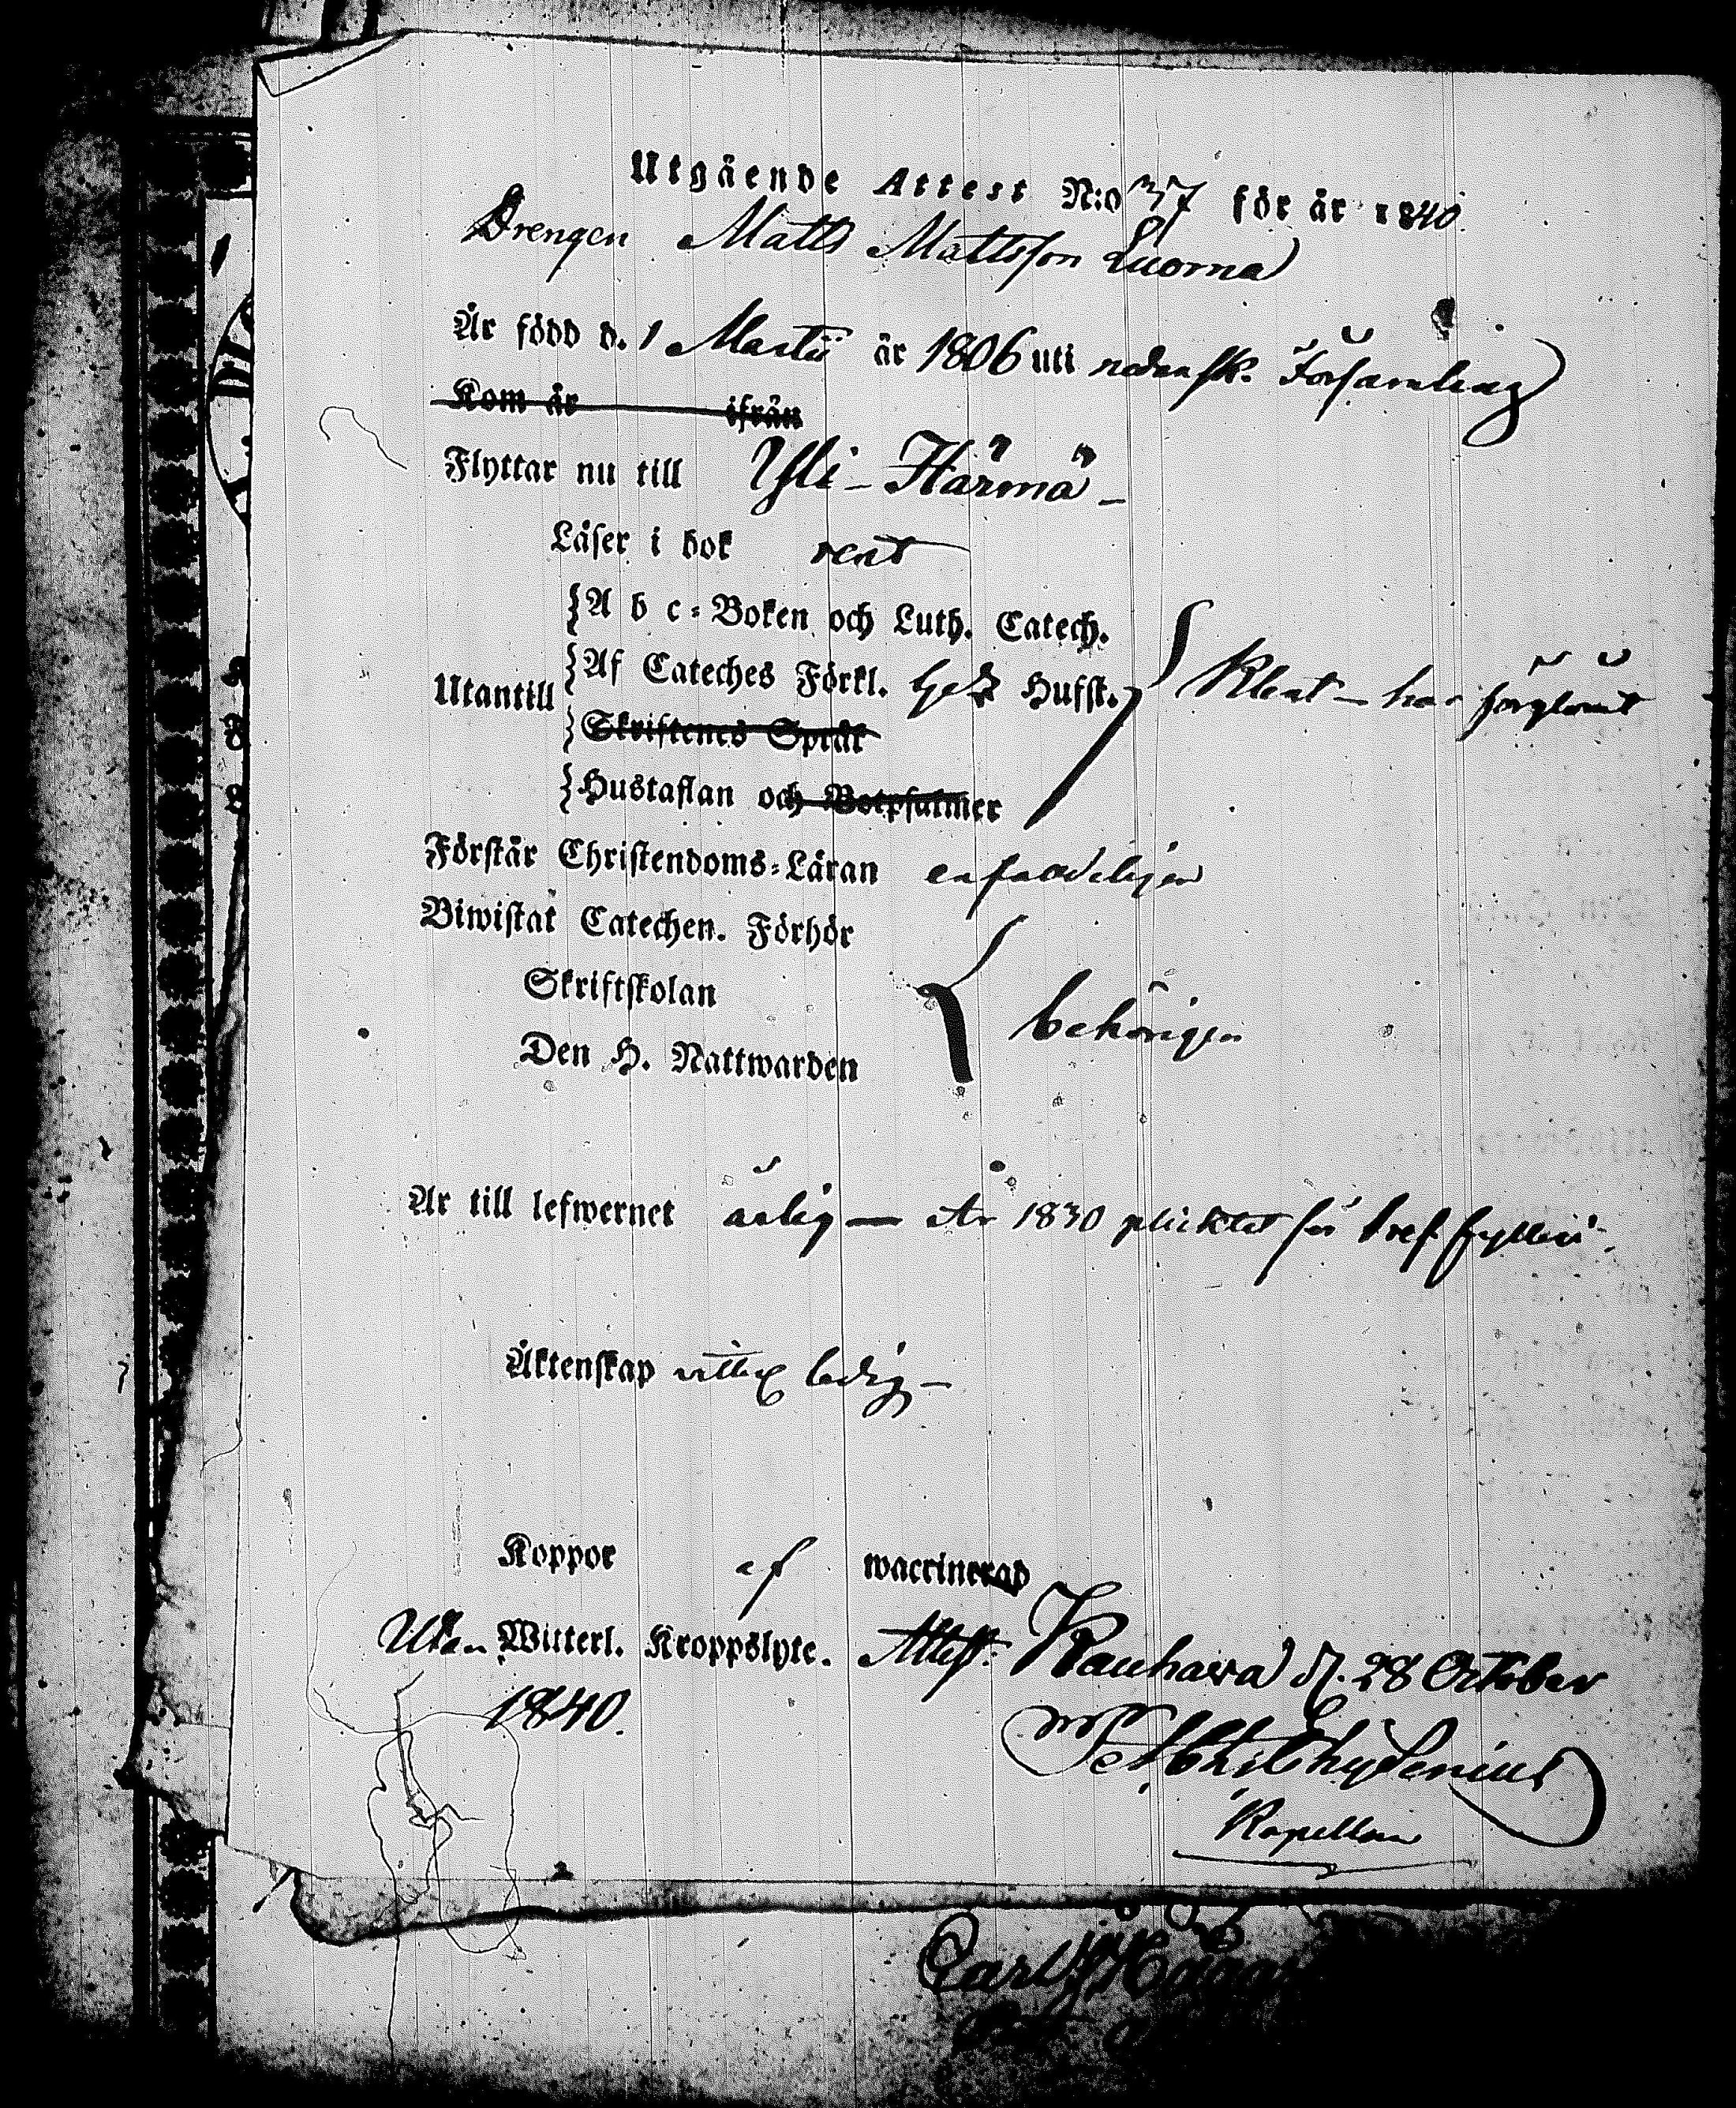 Utgående Attest N:o 37 för år 1840.
Drengen Matts Mattsson Luoma
Är född d. 1 Martii år 1806 uti nedansk. Församling
Kom år ifrån
Flyttar nu till Yli-Härmä-
Läser i bok rent
{A b c-Boken och Luth. Catech.
Utantill {Af Cateches Förkl. Hufst. Klent - har förglömt
{Skriftenes Språk
{Hustaflan och Botpsalmer
Förstår Christendoms-Läran enfaldeligen
Biwistat Catechen. Förhör
Skriftskolan behörigen
Den H. Nattwarden
Är till lefwernet ärlig — År 1830 pliktat för fylleri.
Äktenskap ledig -
Koppor af waccinerad
Utan Witterl. Kroppslyte. Attest. Kauhava d. 28 October
1840.
Chydenius
Kapellan
Carl